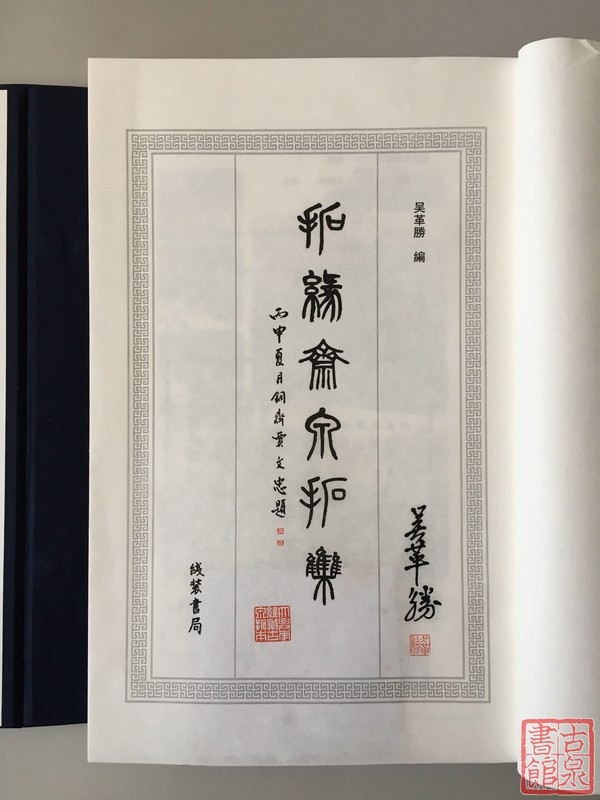 吴革勝 編
吴革勝
拓緣齋泉拓集
丙申夏月銅齋賈文忠題
綫裝書局
古泉書館